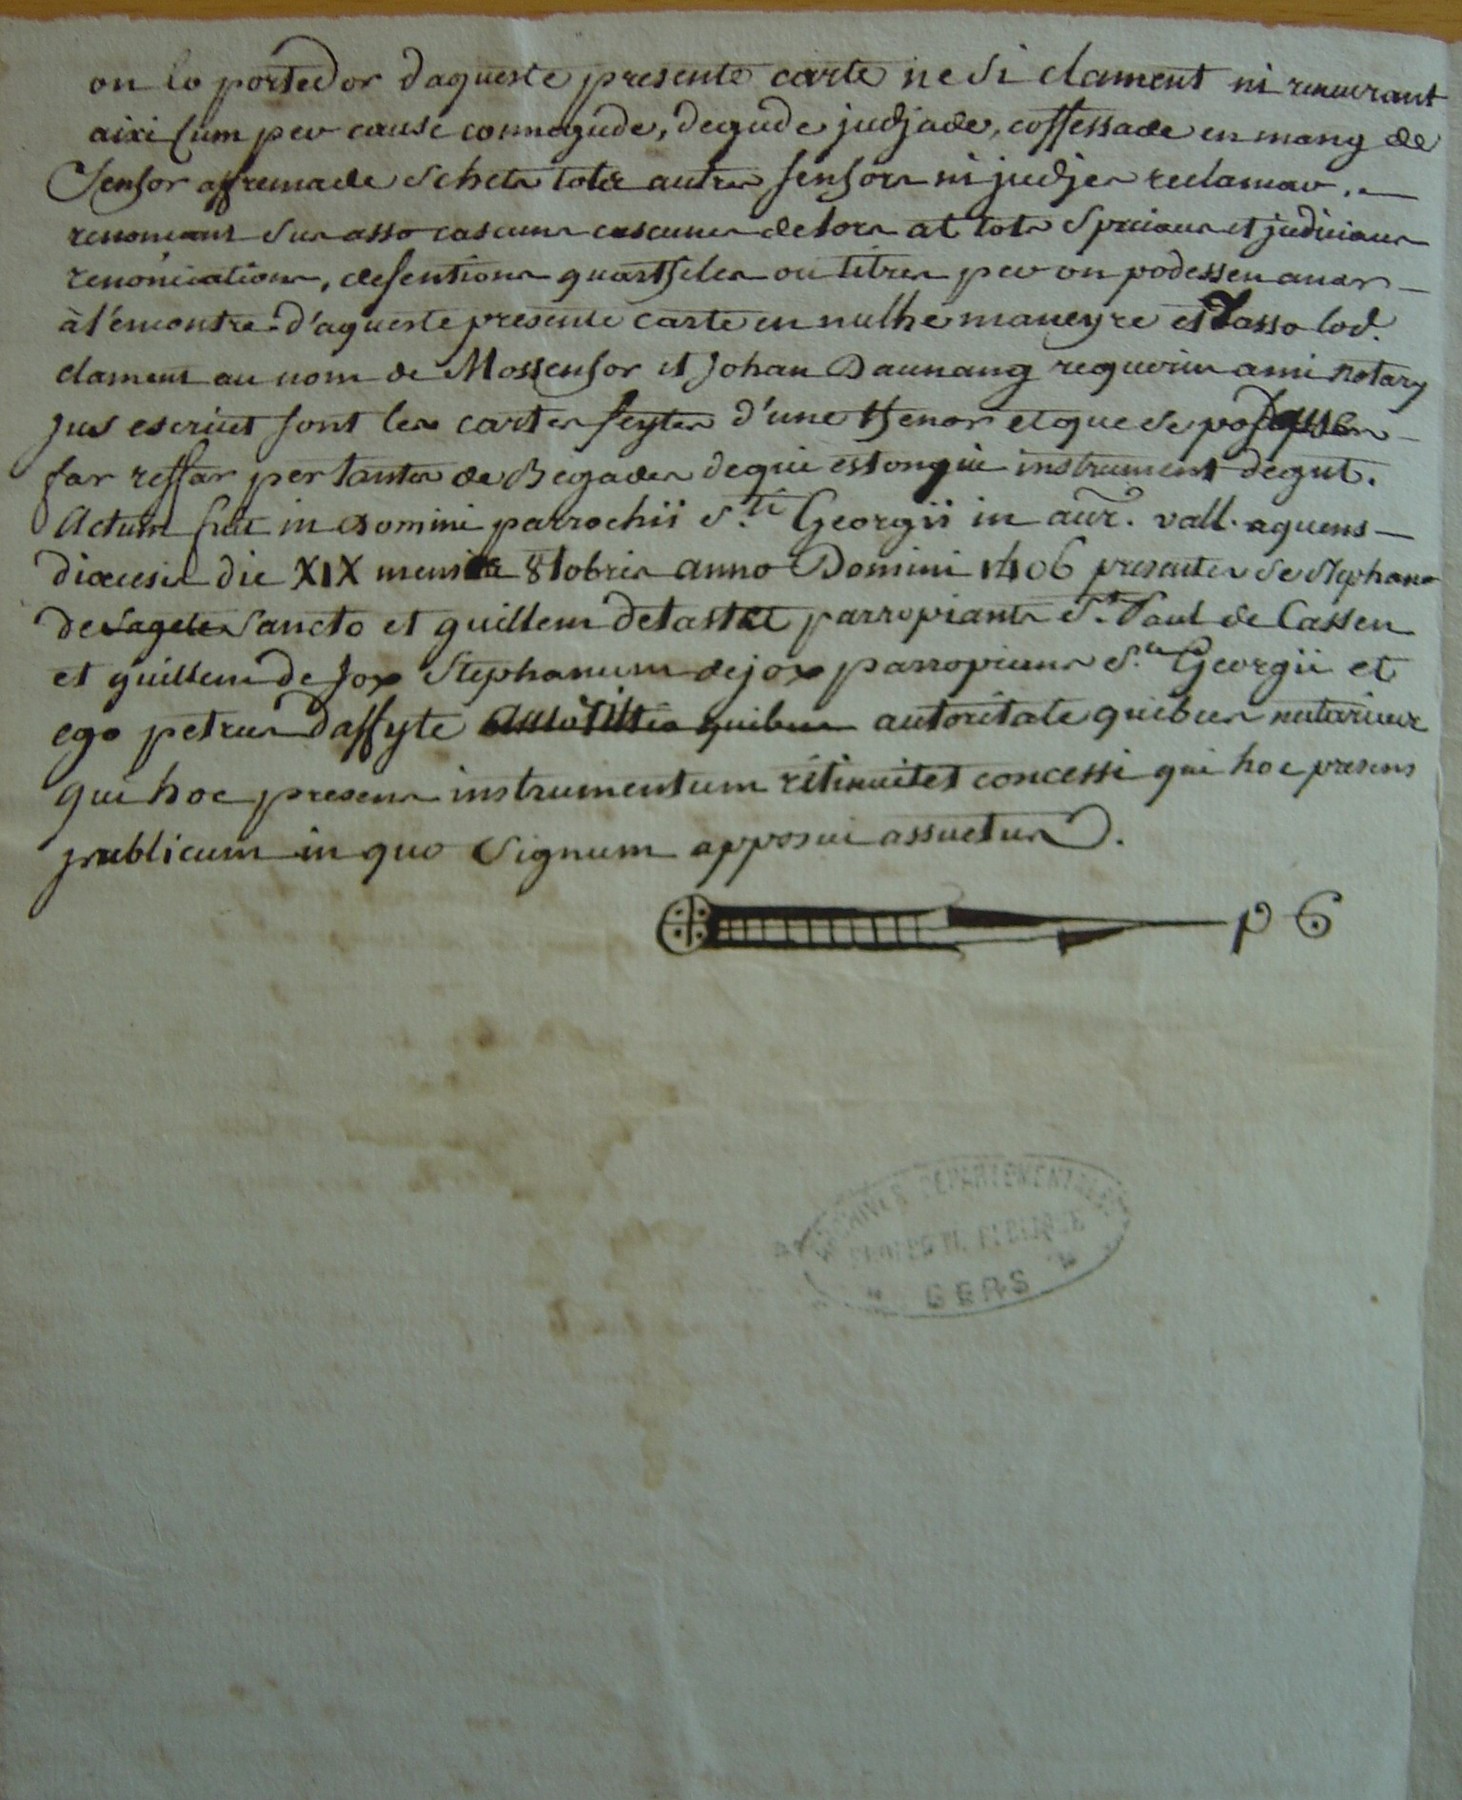 on lo portedor daqueste presente carte ne si clament ni rencurant
aixi cum per cause connegude, degude judjade, coffessade en mang de
Senhor affremade schetz totz autres senhors ni judjes reclamar.
renonciant sus asso cascuns cascunes de lors at totz speciaus et judiciaus
renonciations, defentions quartheles ou titres per on podossen anar
à l'encontre d'aqueste presente carte en nulhe maneyre et d'asso lod.
clament au nom de Mossenhor et Johan Daunang requerin a mi notary
jus escriut sont les cartes feytes d'une thenor et que se
far reffar per tantes de Begades de qui estongui instrument degut.
Actum fuit in Domini parrochii S.ti Georgii in aur. vall. aquens
diocesis die XIX mensis 8tobris anno Domini 1406 presentes Stephano
de Sancto et guillem detastet parropiants St. Paul de Cassen
et guillem de Jox Stephanum de jox parropians S.ti Georgii et
ego petrus Daffyte autoritate quibus notarius
qui hoc presens instrumentum retinuit et concessi qui hoc presens
publicum in quo Signum apposui assuetum.
p 6
ARCHIVES DEPARTEMENTALES
GERS